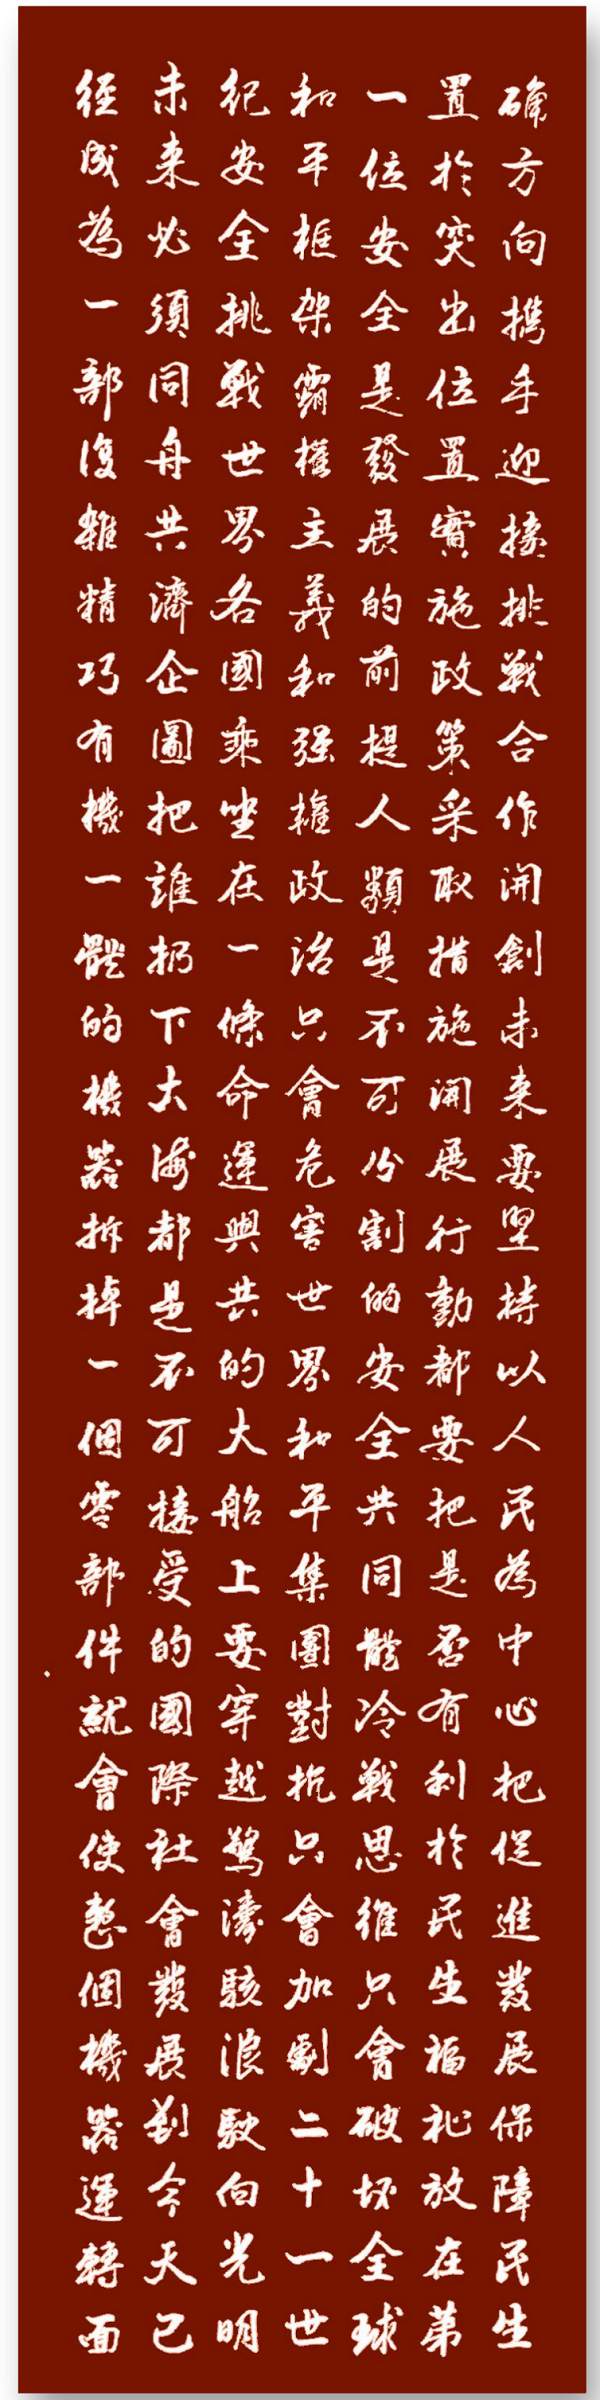 確方向攜手迎接挑戰合作開創未来要堅持以人民為中心把促進發展保障民生
置於突出位置實施政策采取措施開展行動都要把是否有利於民生福祉放在第
一位安全是發展的前提人類是不可分割的安全共同體冷戰思維只會破壞全球
和平框架霸權主義和强權政治只會危害世界和平集團對抗只會加劇二十一世
紀安全挑戰世界各國乘坐在一條命運與共的大船上要穿越驚濤駭浪駛向光明
未来必須同舟共濟企圖把誰扔下大海都是不可接受的國際社會發展到今天已
經成為一部復雜精巧有機一體的機器拆掉一個零部件就會使整個機器運轉面